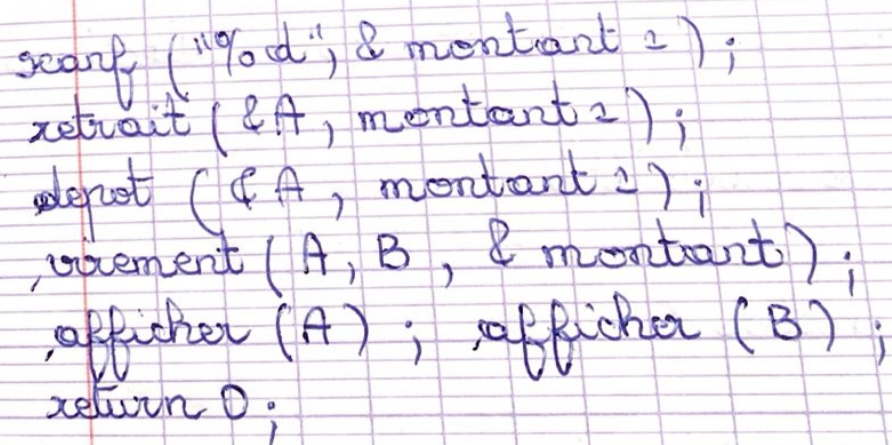 scanf ("%d", & montant 2 );
retrait ( &A, montant 2 );
depot ( &A, montant 2 );
virement ( A, B, & montant );
afficher (A) ; afficher (B) ;
return 0 ;